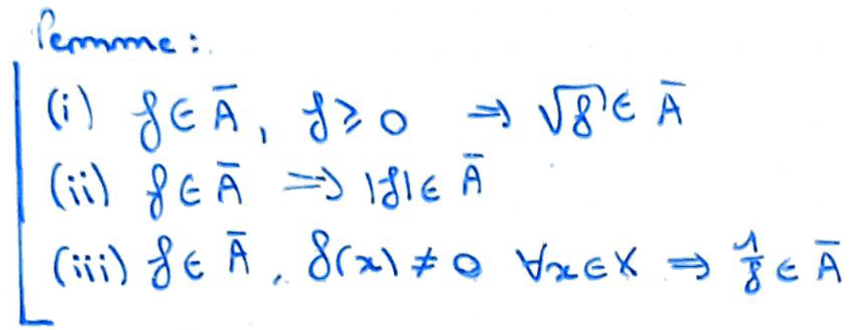 Lemme :
(i) f ∈ Ā, f ⩾ 0 ⇒ √f ∈ Ā
(ii) f ∈ Ā ⇒ |f| ∈ Ā
(iii) f ∈ Ā, f(x) ≠ 0 ∀x ∈ X ⇒ 1/f ∈ Ā